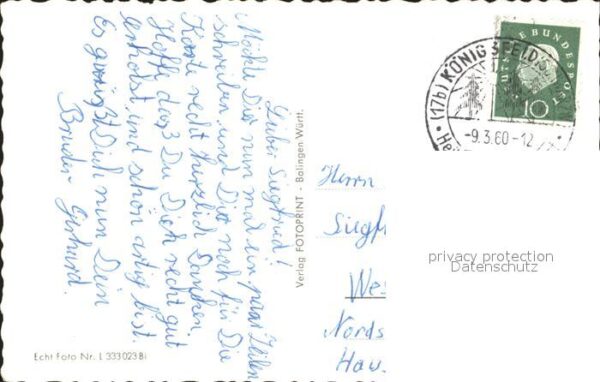 Lieber Siegfried!
Möchte Dir nun mal ein paar Zeilen
schreiben und Dir noch für Die
Karte recht herzlich Danken.
Hoffe das Du Dich recht gut
erholst und schön artig bist.
Es grüßt Dich nun Dein
Bruder Gerhard.
Verlag FOTOPRINT - Balingen Württ.
Echt Foto Nr. L 333 023 Bi
DEUTSCHE BUNDESPOST
10
(17b) KÖNIGSFELD
-9.3.60-12
Herrn
Siegf
We
Nords
Hau
privacy protection
Datenschutz